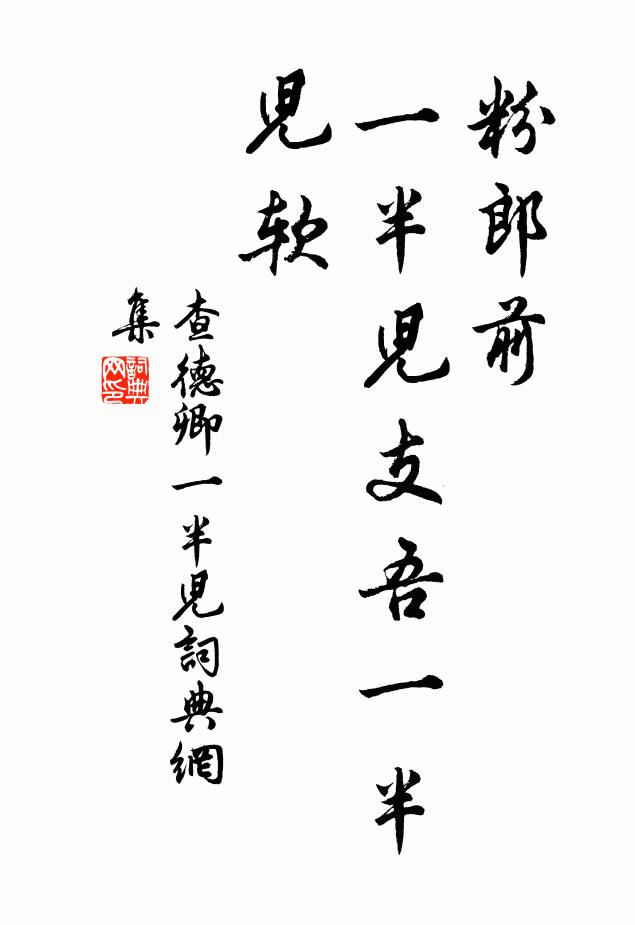 粉郎前
一半兒支吾一半
兒软
查德卿一半兒詞典網
集
詞典
网印